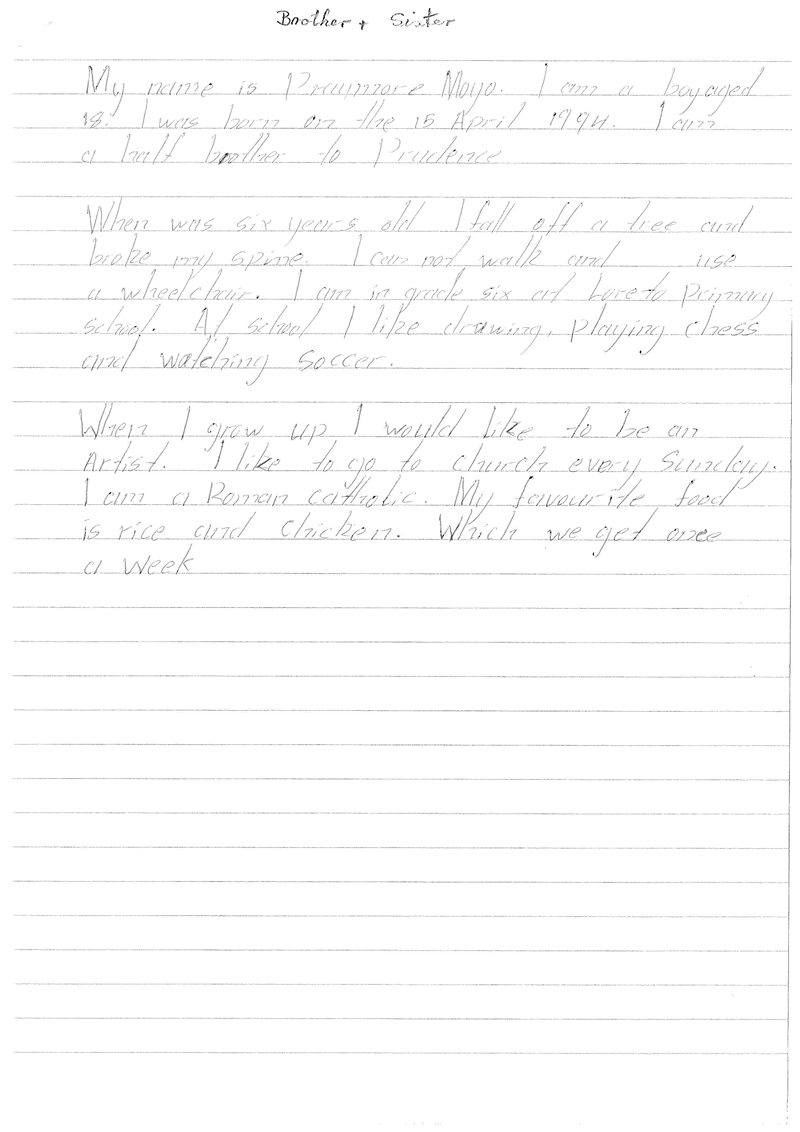 Brother + Sister
My name is Praymore Moyo. I am a boy aged
18. I was born on the 15 April 1994. I am
a half brother to Prudence
When was six years old I fall off a tree and
broke my spine. I can not walk and use
a wheelchair. I am in grade six at Loreto Primary
school. At school I like drawing, playing chess
and watching soccer.
When I grow up I would like to be an
Artist. I like to go to church every Sunday.
I am a Roman catholic. My favourite food
is rice and chicken. Which we get once
a week